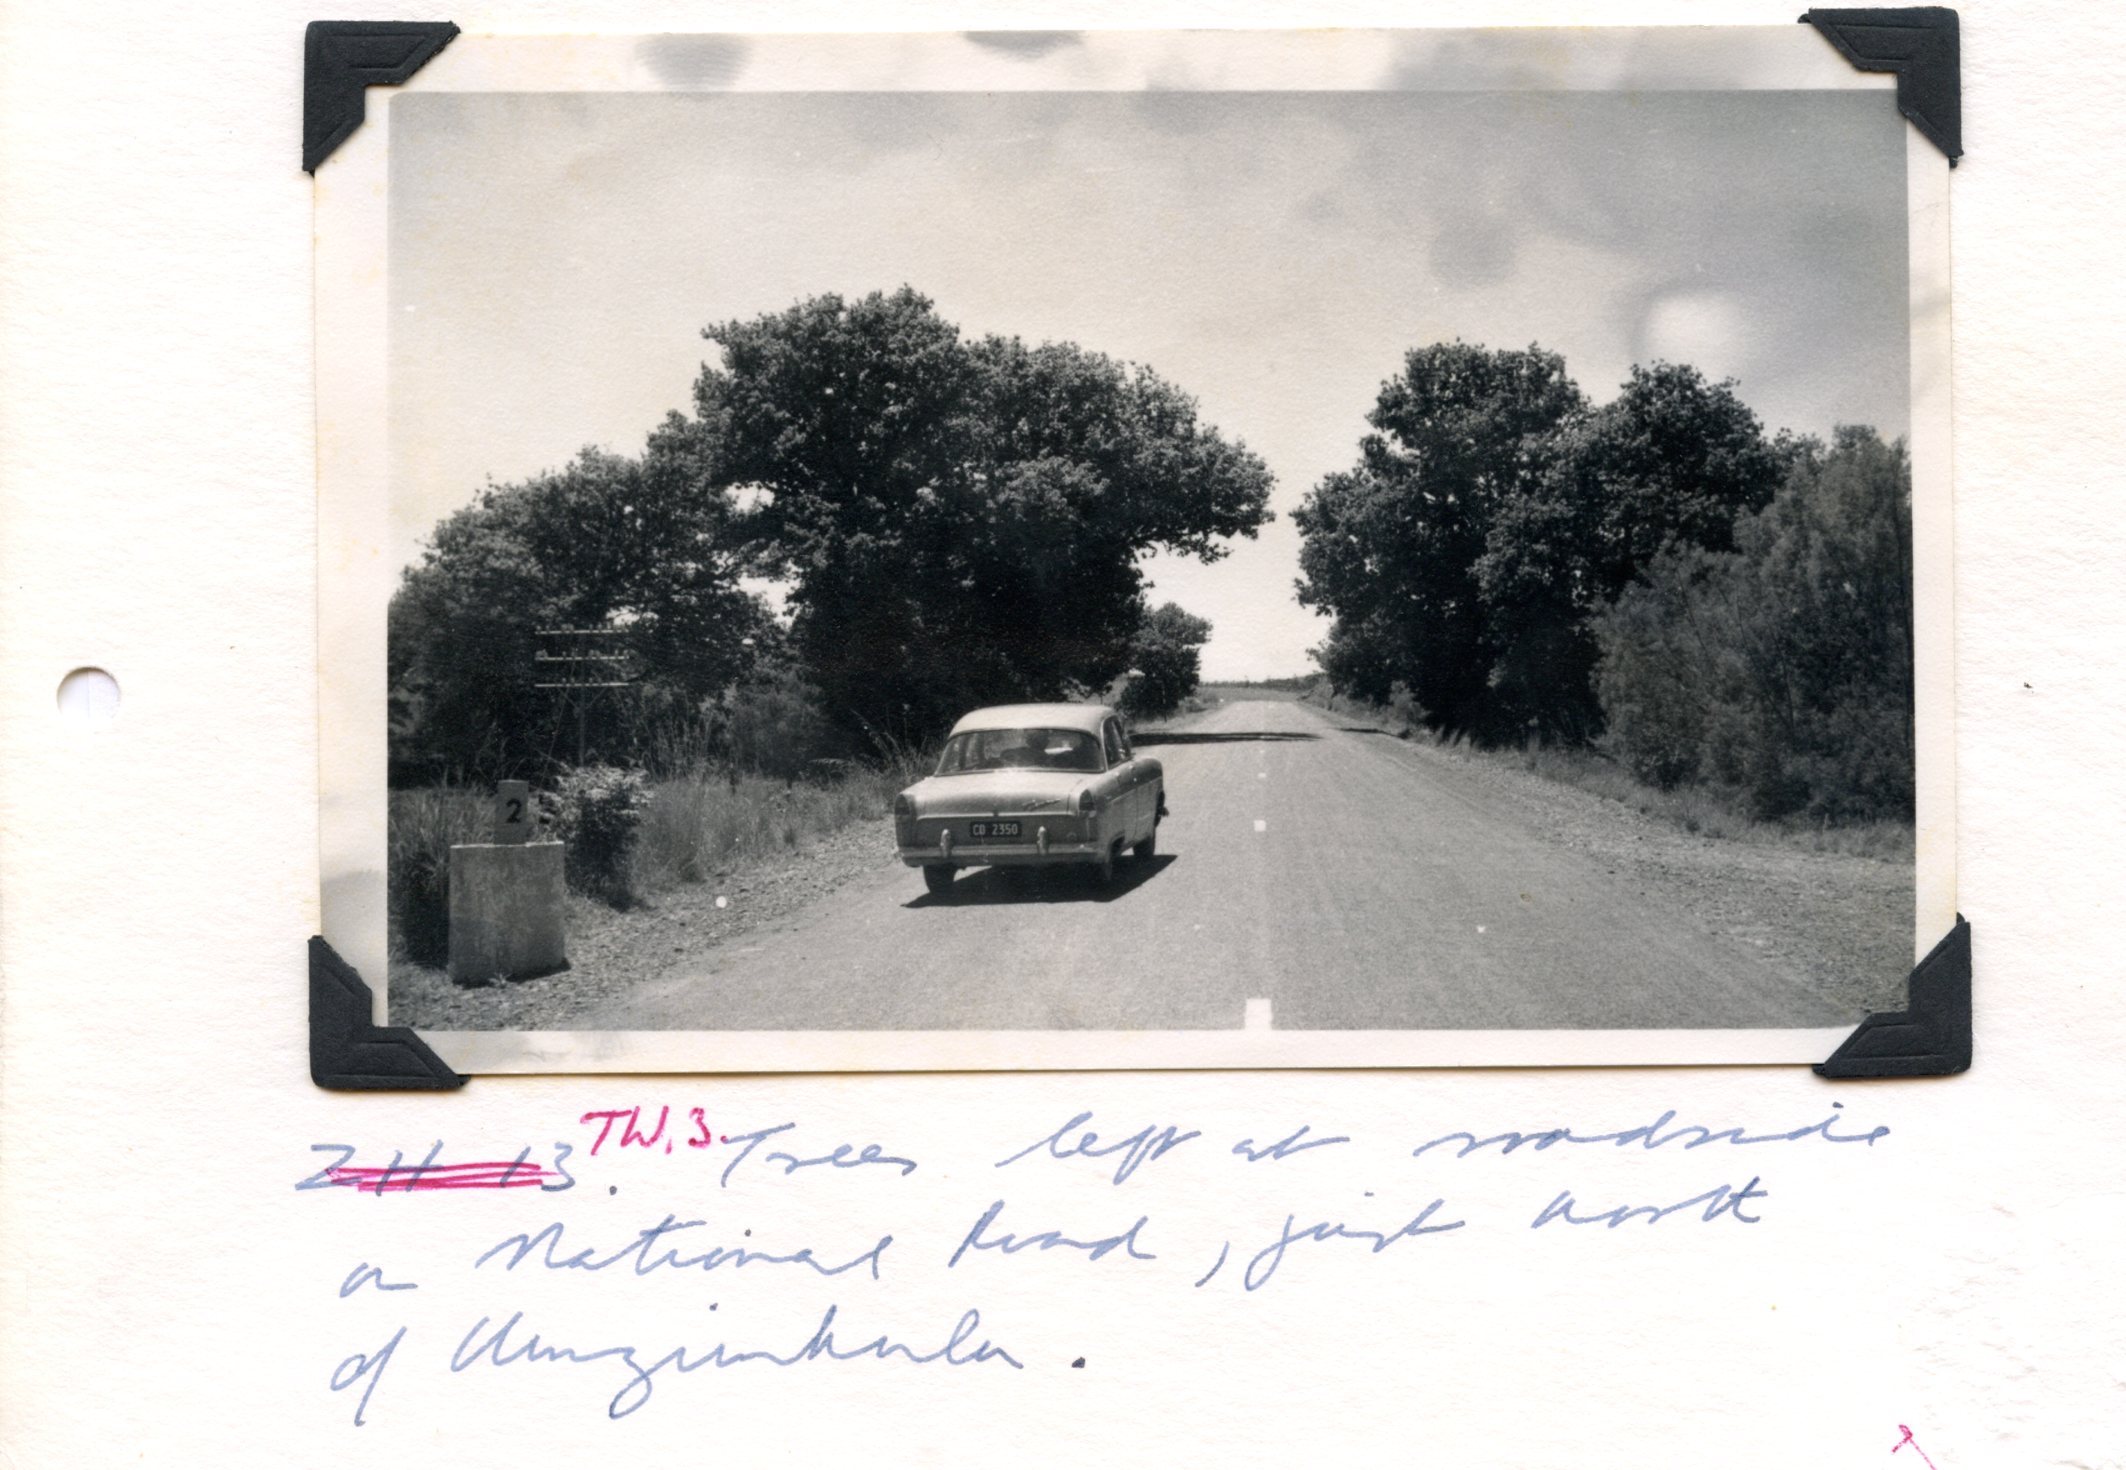 2
CD 2350
ZH 13. TW.3. Trees left at roadside
on National Road, just north
of Umzimkulu.